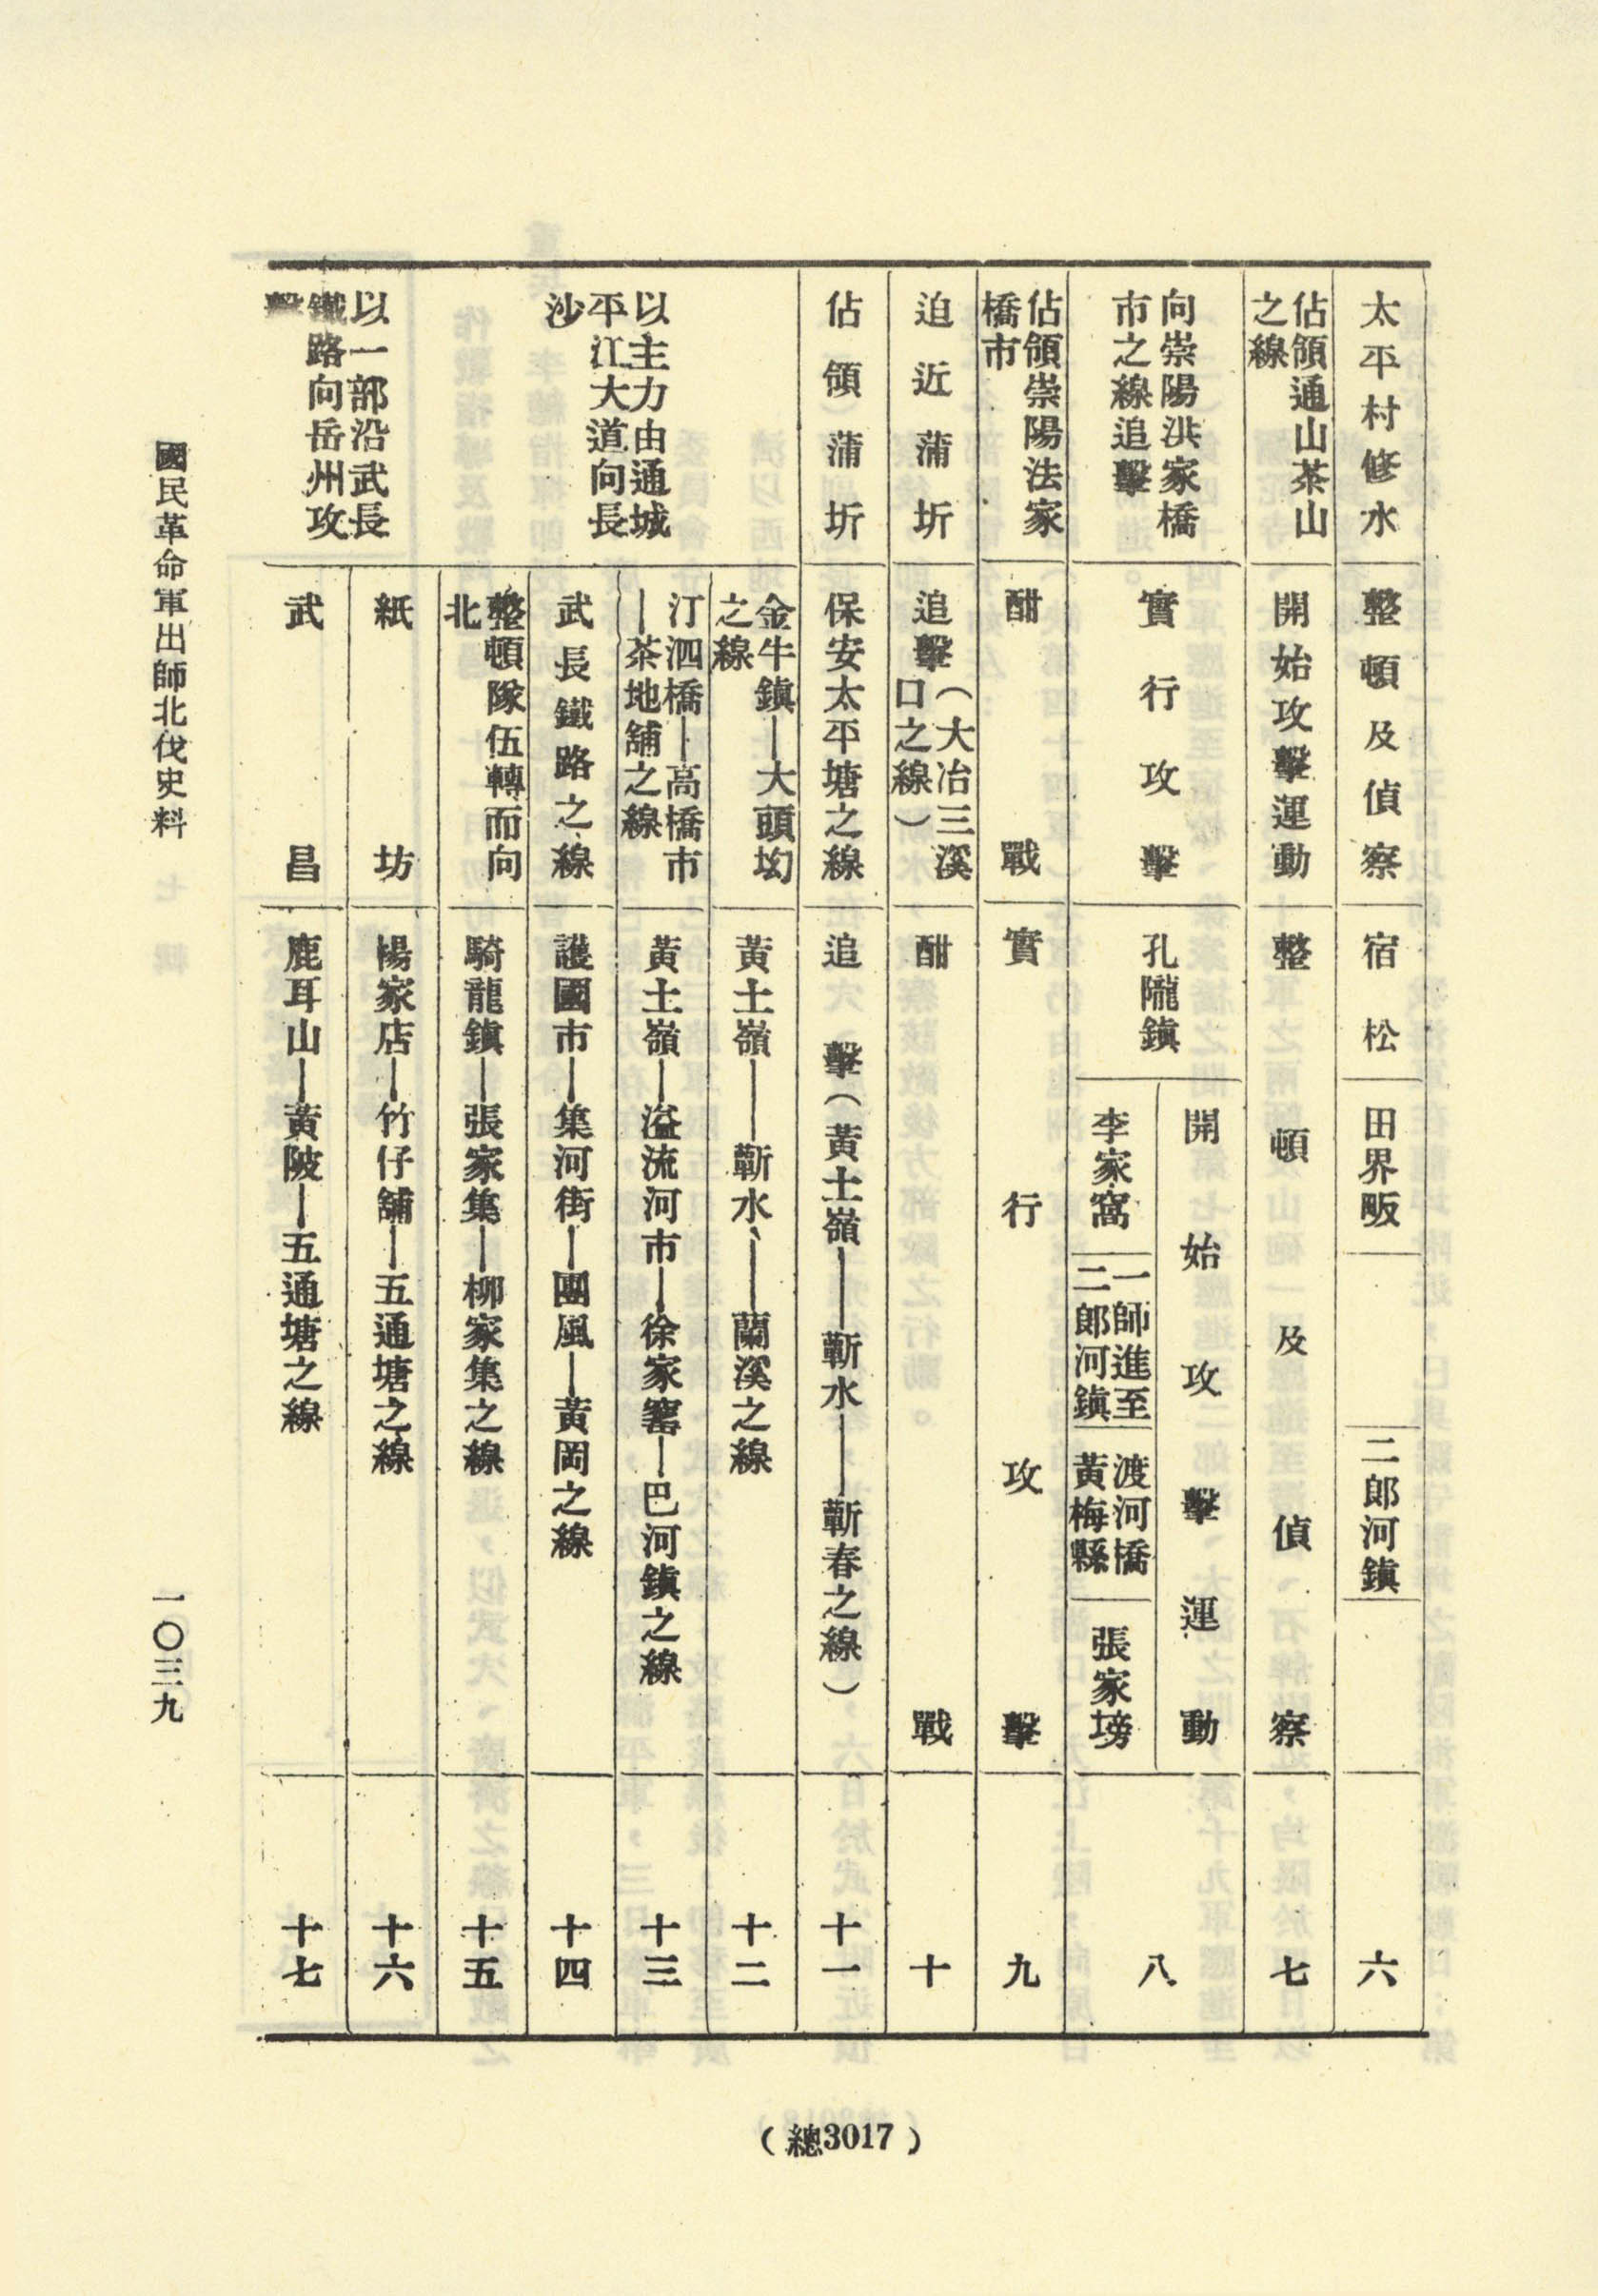 太平村修水
整頓及偵察
宿松
田界畈
二郎河鎮
六
佔領通山茶山
之線
開始攻擊運動
整頓及偵察
七
向崇陽洪家橋
市之線追擊
實行攻擊
孔隴鎮
開始攻擊運動
李家窩
一師進至
二郎河鎮
渡河橋
黃梅縣
張家塝
八
佔領崇陽法家
橋市
酣戰
實行攻擊
九
迫近蒲圻
追擊(大冶三溪
口之線)
酣戰
十
佔領蒲圻
保安太平塘之線
追擊(黃土嶺——蘄水——蘄春之線)
十一
以主力由通城
平江大道向長
沙
金牛鎮—大頭㘭
之線
黃土嶺——蘄水——蘭溪之線
十二
汀泗橋—高橋市
—茶地舖之線
黃土嶺—溢流河市—徐家窰—巴河鎮之線
十三
武長鐵路之線
護國市—集河街—團風—黃岡之線
十四
整頓隊伍轉而向
北
騎龍鎮—張家集—柳家集之線
十五
以一部沿武長
鐵路向岳州攻
擊
紙坊
楊家店—竹仔舖—五通塘之線
十六
武昌
鹿耳山—黃陂—五通塘之線
十七
國民革命軍出師北伐史料
一〇三九
(總3017)